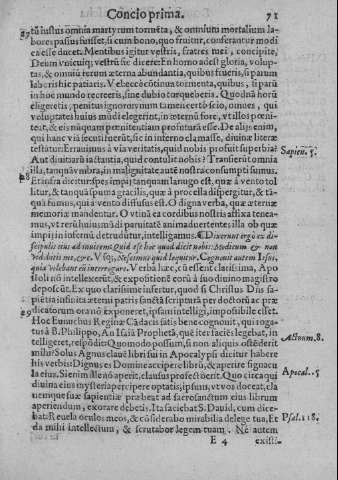 Concio prima. 71
tũ iustus omnia martyrum tormẽta, & omniũ mortalium la-
bores passus fuisset, si cum bono, quo fruitur, conferantur modi
ca esse ducet. Mentibus igitur vestris, fratres mei, concipite,
Deum vnicuiq; vestrũ sic dicere: En homo adest gloria, volup-
tas, & omniũ rerum æterna abundantia, quibus frueris, si parum
laboris hic patiaris. V ebecce cõtinua tormenta, quibus, si parũ
in hoc mundo recreeris, sine dubio torqueberis. Quod nã horũ
eligeretis, penitus ignoro: vnum tamen certò scio, omnes, qui
voluptates huius mũdi elegerint, in æternũ fore, vt illos pœni-
teat, & eis nũquam pœnitentiam profutura esse. De alijs enim,
qui hanc viã secuti fuerũt, sic in inferno clamasse, diuinæ literæ
testãtur: Errauimus à via veritatis, quid nobis profuit superbia?
Aut diuitiarũ iactantia, quid contulit nobis? Transierũt omnia
illa, tanquã vmbra, in malignitate autẽ nostra consumpti sumus.
Et infra dicitur: spes impij tanquam lanugo est, quæ à vento tol
litur, & tanquã spuma gracilis, quæ à procella dispergitur, & tã-
quã fumus, qui à vento diffusus est. O digna verba, quæ æternæ
memoriæ mandentur. O vtinã ea cordibus nostris affixa tenea-
mus, vt rerũ huius mũdi paruitatẽ animaduertentes: illa ob quæ
impij in infernũ detrudũtur, intelligamus. Dixerunt ergo ex di-
scipulis eius ad inuicem: Quid est hoc quod dicit nobis: Modicum & non
videbitis me, &c. Vsq; & nescimus quid loquitur. Cognouit autem Iesus,
quia volebant eũ interrogare. Verba hæc, cũ essent clarissima, Apo
stoli nõ intellexerũt, & expositionẽ eorũ à suo diuino magistro
deposcũt. Ex quo clarissimè infertur, quod si Christus Dñs sa-
piẽtia infinita æterni patris sanctã scripturã per doctorũ ac præ
dicatorum ora nõ exponeret, ipsam intelligi, impossibile esset.
Hoc Eunuchus Reginæ Cãdacis satis bene cognouit, qui roga-
tus à B. Philippo, An Isaiã Prophetã, quẽ iter faciẽs legebat, in
telligeret, respõdit: Quomodo possum, si non aliquis ostẽderit
mihi? Solus Agnus clauẽ libri sui in Apocalypsi dicitur habere
his verbis: Dignus es Domine accipere librũ, & aperire signacu
la eius. Si enim ille nõ aperit, clausus profectò erit. Quo circa qui
diuina eius mysteria percipere optatis, ipsum, vt vos doceat, cla
uemque suæ sapientiæ præbeat ad sacrosanctum eius librum
aperiendum, exorare debetis. Ita faciebat S. Dauid, cum dice-
bat: Reuela oculos meos, & cõsiderabo mirabilia de lege tua, Et
da mihi intellectum, & scrutabor legem tuam. Ne autem
E 4 existi-
Sapien. 5.
Actorum. 8.
Apocal. 5
Psal. 118.